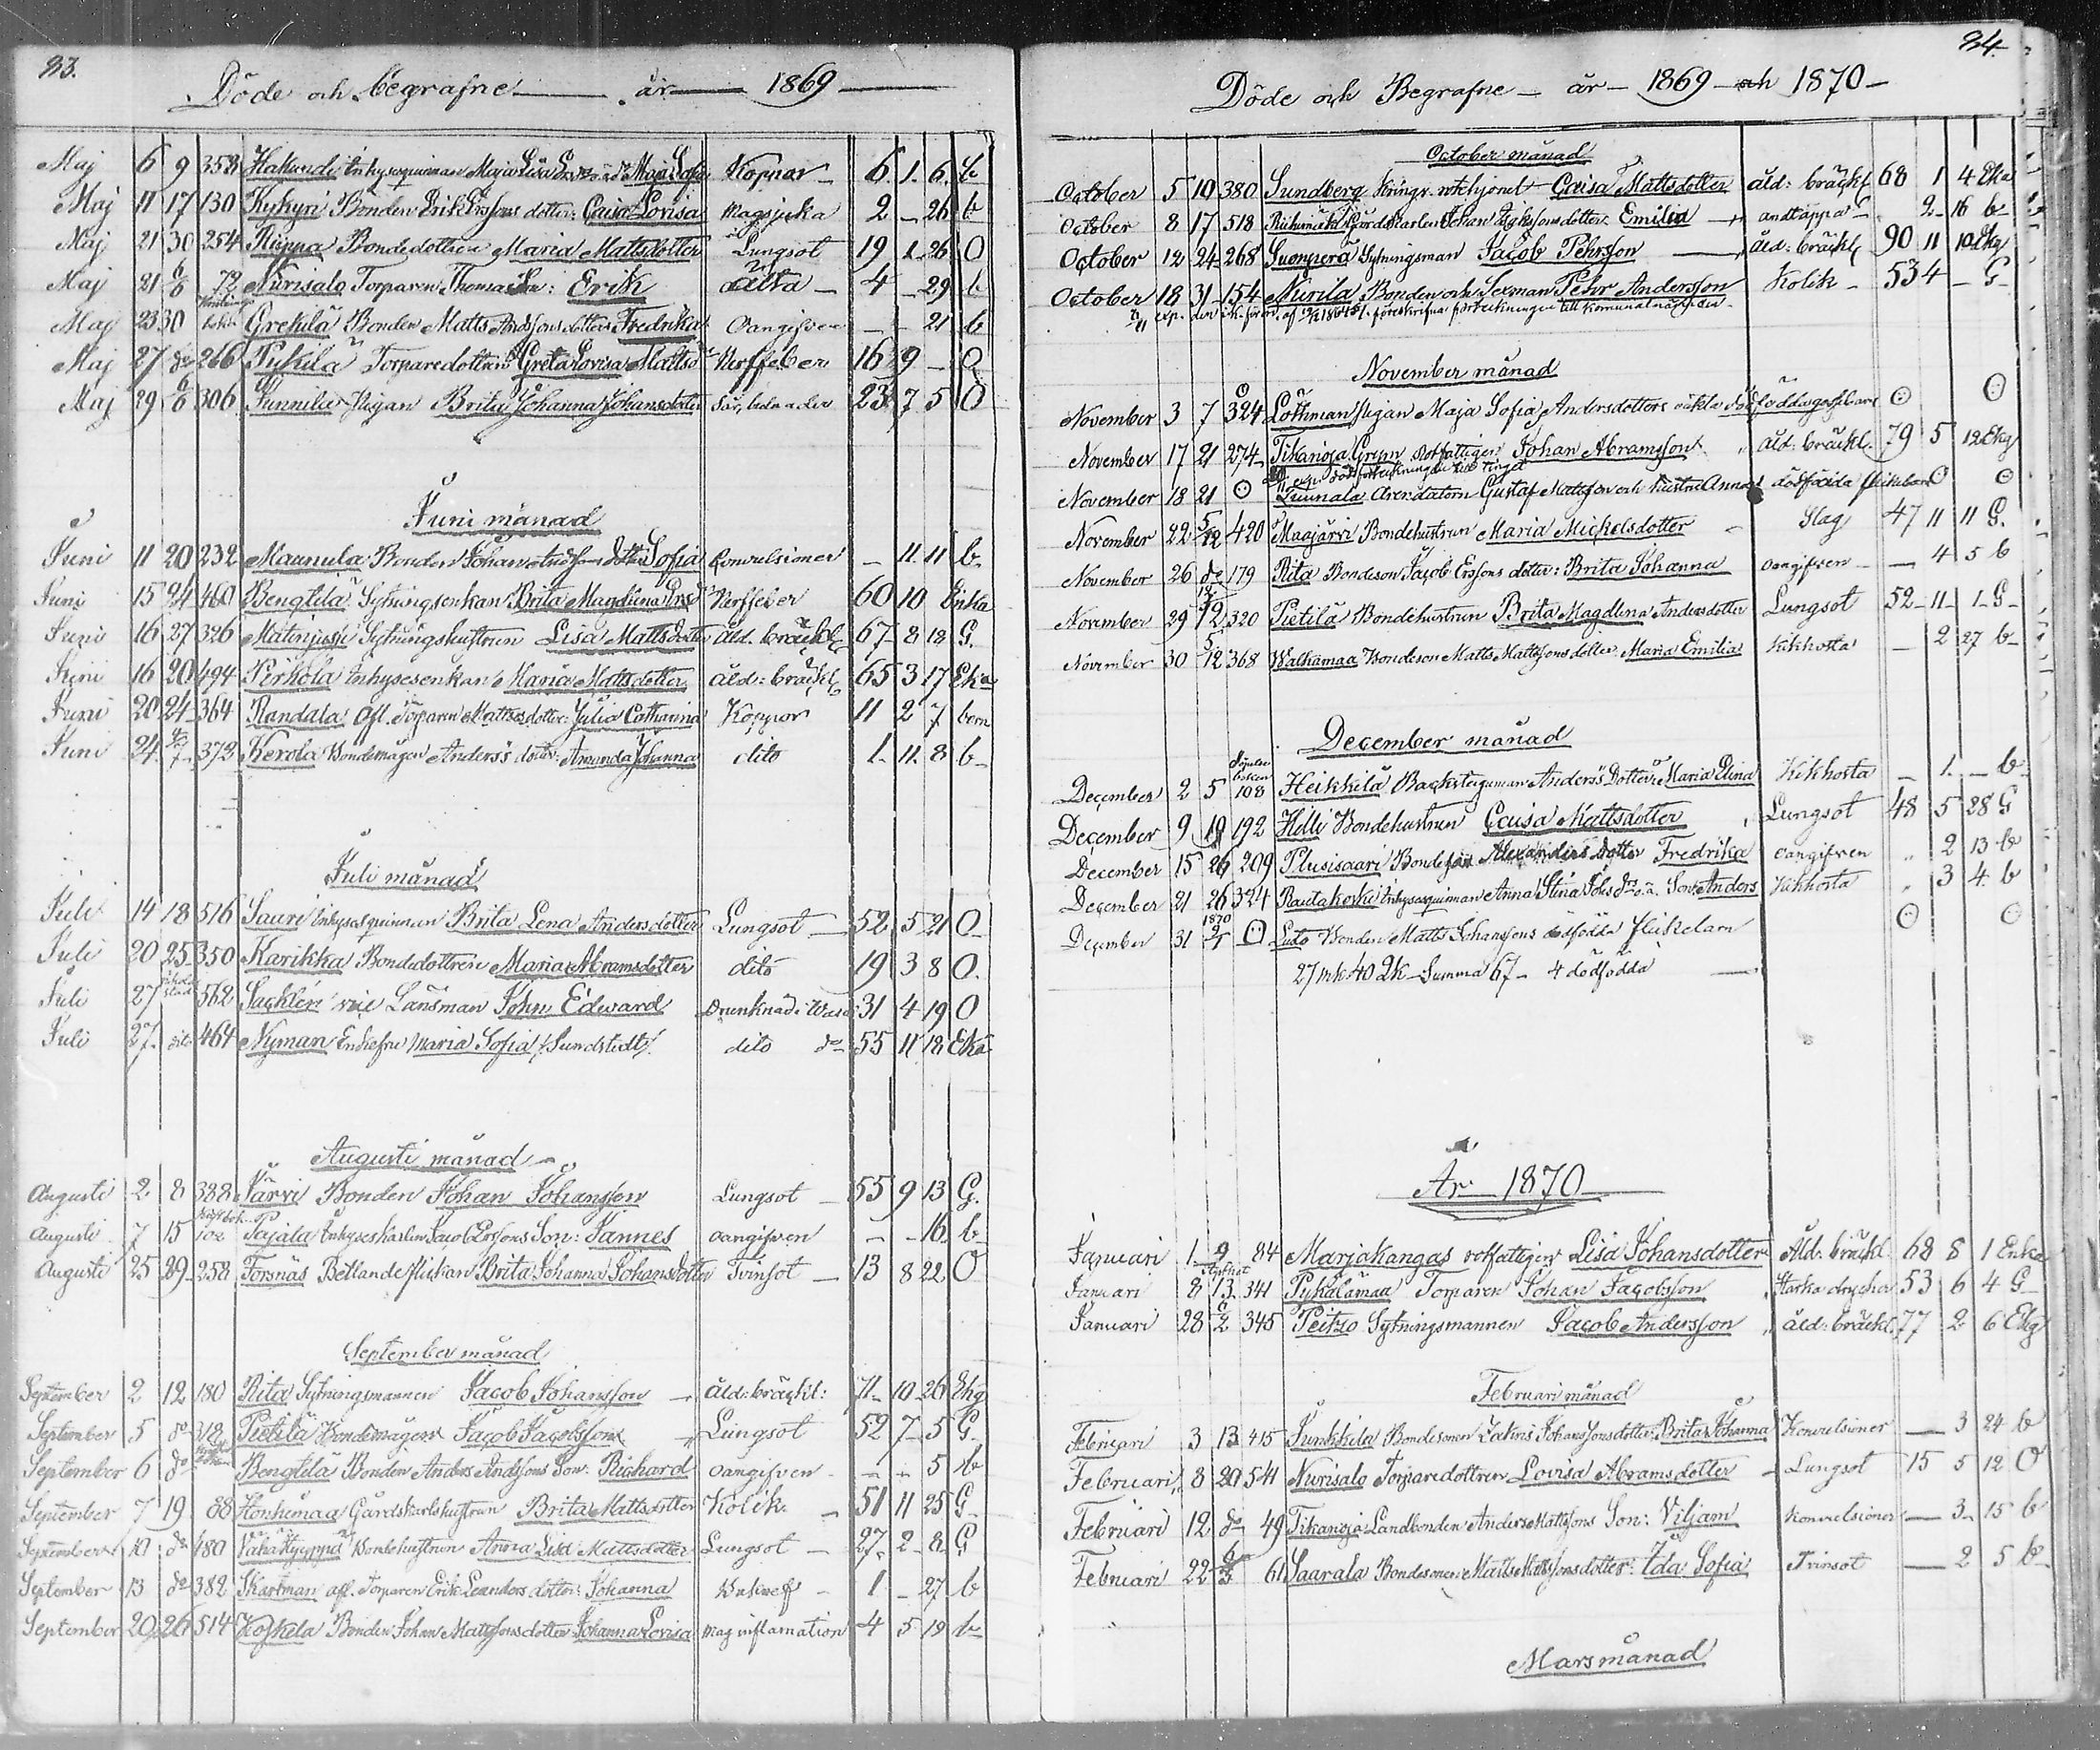 83.
Döde och begrafne år 1869
Maj 6 9 358 Hakundi Inhysesqvinnan Maja Lisa Maja Sofia Koppor 6. 1. 6. b
Maj 11 17 130 Kykyri Bonden Erik Erssons dotter: Caisa Lovisa Magsjuka 2 - 26 b
Maj 21 30 254 Ruppa Bondedottren Maria Mattsdotter Lungsot 19 1 26 O
Maj 21 6/6 72 Nurisalo Torparen Thomas Son: Erik älta 4 - 29 b
Maj 23 30 Grekilä Bonden Matts Andssons dotter Fredrika Oangifven - - 21 b
Maj 27 do 266 Pykilä Torparedottren Greta Lovisa Mattsdr Nerffeber 16 9 - O
Maj 29 6/6 306 Sunnila Pigan Brita Johanna Johansdotter 23 7 5 O
Juni månad
Juni 11 20 232 Maunula Bonden Johan Andssons dotter Sofia Convulsioner - 11. 11 b.
Juni 15 24 460 Bengtilä Sytningsenkan Brita Magdlena Nerffeber 60 10 Enka
Juni 16 27 326 Matinjussi Sytningshustrun Lisa Mattsdotter åld. bräckl. 67 - 8 18 G.
Juni 16 20 494 Pirkola Inhysesenkan Maria Mattsdotter åld: bräckl. 65 3 17 Eka
Juni 20 24 364 Randala Afl. Torparen Mattssdotter: Julia Catharina Koppor 11 2 7 barn
Juni 24. 4/7 372 Kerola Bondemågen Anders's dotter: Amanda Johanna dito 1. 11. 8 b
Juli månad
Juli 14 18 516 Sauri Inhysesqvinnan Brita Lena Andersdotter Lungsot 52 5 21 O
Juli 20 25 350 Karikka Bondedottren Maria Abramsdotter dito 19 3 8 O.
Juli 27 562 Sacklén vice Länsman John Edward Drunknad i Wasa 31 4 19 O
Juli 27. dito 464 Nyman Enkefru Maria Sofia /: Sundstedt/. dito do 55 11 18 Eka
Augusti månad
Augusti 2 8 388 Järvi Bonden Johan Johansson Lungsot 55 9 13 G.
Augusti 7 15 102 Pajala Inhyseskarlen Jacob Erssons Son: Jannes oangifven - - 16 b
Augusti 25 29 258 Forsnäs Betlande flickan Brita Johanna Johansdotter Tvinsot 13 8 22 O
September månad
September 2 12 180 Rita Sytningsmannen Jacob Johansson åld: bräckl: 71 10 26 Ekg
September 5 do 318 Pietilä Bondemågen Jacob Jacobsson Lungsot 52 7 5 G
September 6 do Bengtilä Bonden Anders Andssons Son: Richard Oangifven - - 5 b
September 7 19 88 Honkimaa Gårdskarlshustrun Brita Mattsdotter Kolik. 51 11 25 G
September 10 do 480 Bondehustrun Anna Lisa Mattsdotter Lungsot 27. 2 8 G
September 13 do 382 Skartman afl. Torparen Erik Leanders dotter: Johanna 1 - 27 b
September 20 26 514 Koskela Bonden Johan Mattssons dotter Johanna Lovisa Mag inflamation 4 5 19 b
84.
Döde och Begrafne år 1869 och 1870
October månad
October 5 10 380 Sundberg Caisa Mattsdotter åld: bräckl 68 1 4 Eka
October 8 17 518 Gårdskarlen Johan dotter Emilia andtäppa 2 16 b
October 12 24 268 Suenperä Sytningsman Jacob Pehrsson åld: bräckl 90 11 10 Ekg
October 18 31 154 Niirilä Bonden och Sexman Pehr Andersson Kolik 53 4 - G
November månad
November 3 7 324 Löthman Pigan Maja Sofia Andersdotters oäkta dödfödda gossebarn
November 17 21 274 Tikanoja Grepn Rotfattigen Johan Abramsson åld: bräckl. 79 5 12 Ekg
November 18 21 Luunala Arendatorn Gustaf Mattsson och hustru Annas dödfödda flickebarn
November 22 5/12 420 Maajärvi Bondehustrun Maria Mickelsdotter Slag 47 11 11 G.
November 26 do 179 Rita Bondeson Jacob Erssons dotter: Brita Johanna oangifven - 4 5 b
November 29 12/12 320 Pietilä Bondehustrun Brita Magdlena Andersdotter Lungsot 52 11 1 G
November 30 5/12 368 Walkamaa Bondeson Matts Mattssons dotter: Maria Emilia Kikhosta - 2 27 b
December månad
December 2 5 108 Heikkilä Backstuguman Anders's Dotter: Maria Elina Kikhosta - 1. - b
December 9 19 192 Helli Bondehustrun Caisa Mattsdotter Lungsot 48 5 28 G
December 15 26 209 Plusisaari Bondeson Alexanders dotter Fredrika oangifven 2 13 b
December 21 26 324 Rautakoski Inhysesqvinnan Anna Stina Johsdrs o.ä. Son: Anders Kikhosta 3 4. b
December 31 1870 2/1 Luto Bonden Matts Johanssons dödfödda flickebarn
27 mk 40 2k Summa 67 - 4 dödfödda
År 1870
Januari 1 9 84 Marjakangas rotfattigen Lisa Johansdotter Åld. bräckl. 68 8 1 Enka
Januari 8 13 341 Pykälämaa Torparen Johan Jacobsson Starka drycker 53 6 4 G
Januari 28 6/2 345 Peitzo Sytningsmannen Jacob Andersson åld: bräckl. 77 2 6 Ekg
Februari månad
Februari 3 13 415 Junkkila Bondesonen Zakris Johanssons dotter: Brita Johanna Konvulsioner - 3 24 b
Februari 8 20 541 Nurisalo Torparedottren Lovisa Abramsdotter Lungsot 15 5 12 O
Februari 12 do 49 Tikanoja Landbonden Anders Mattssons Son: Viljam Konvulsioner - 3 15 b
Februari 22 6/3 61 Saarala Bondesonen Matts Mattssons dotter: Ida Sofia Trinsot - 2 5 b
Mars månad